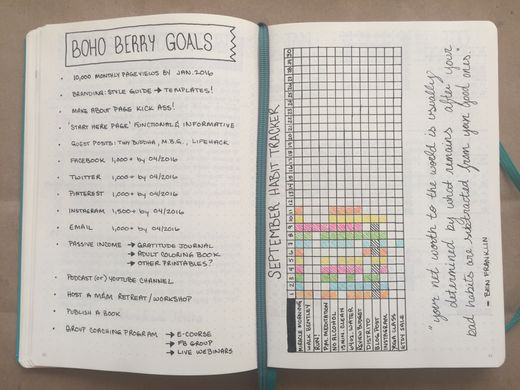 BOHO BERRY GOALS
• 10,000 MONTHLY PAGEVIEWS BY JAN. 2016
• BRANDING: STYLE GUIDE → TEMPLATES!
• MAKE ABOUT PAGE KICK ASS!
• 'START HERE PAGE' FUNCTIONAL & INFORMATIVE
• GUEST POSTS: TINY BUDDHA, M.B.G., LIFEHACK
• FACEBOOK 1,000+ by 04/2016
• TWITTER 1,000+ by 04/2016
• PINTEREST 1,000+ by 04/2016
• INSTAGRAM 1,500+ by 04/2016
• EMAIL 1,000+ by 04/2016
• PASSIVE INCOME → GRATITUDE JOURNAL
→ ADULT COLORING BOOK
→ OTHER PRINTABLES?
• PODCAST (or) YOUTUBE CHANNEL
• HOST A RETREAT/WORKSHOP
• PUBLISH A BOOK
• GROUP COACHING PROGRAM → E-COURSE
→ FB GROUP
→ LIVE WEBINARS
SEPTEMBER HABIT TRACKER
1 2 3 4 5 6 7 8 9 10 11 12 13 14 15 16 17 18 19 20 21 22 23 24 25 26 27 28 29 30
MIRACLE MORNING
WALK BENTLEY
RUN!
P.M. MEDITATION
NO ALCOHOL
15 MIN. CLEAN
64 OZ. WATER
REVIEW BUDGET
DISTRITO
BLOG POST
INSTAGRAM
YOGA CLASS
ETSY SALE
"your net worth to the world is usually
determined by what remains after your
bad habits are subtracted from your good ones."
- BEN FRANKLIN